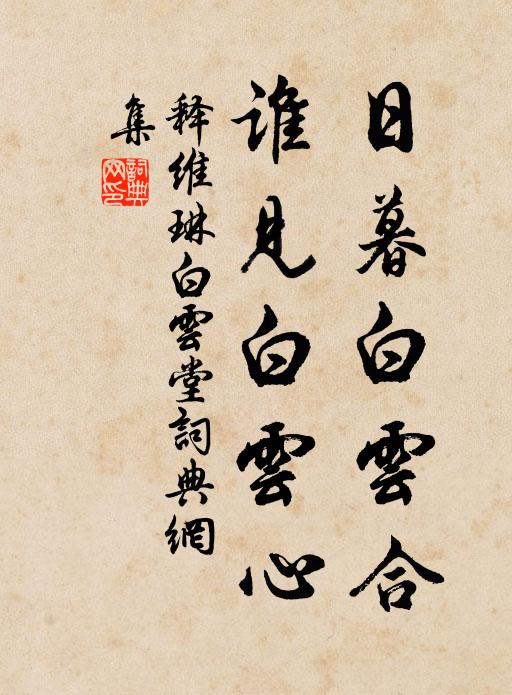 日暮白雲合
誰見白雲心
释維琳白雲堂詞典網
集
詞典
网印